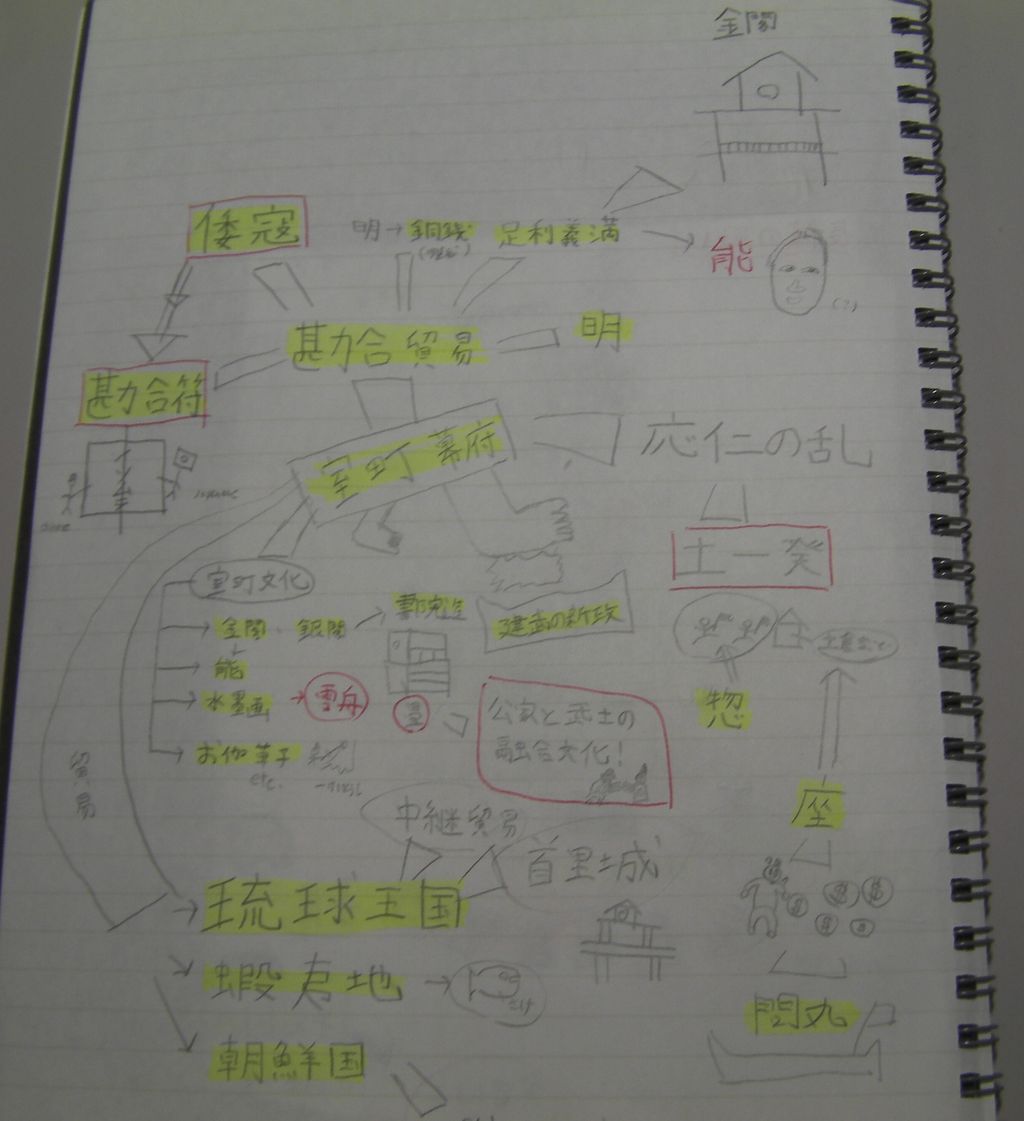 金閣
倭寇
明→銅銭
足利義満
能
(?)
勘合貿易
明
勘合符
室町幕府
応仁の乱
土一揆
室町文化
金閣・銀閣
書院造
建武の新政
能
水墨画
雪舟
畳
お伽草子
etc.
公家と武士の
融合文化!
惣
座
貿易
中継貿易
首里城
琉球王国
蝦夷地
朝鮮国
問丸